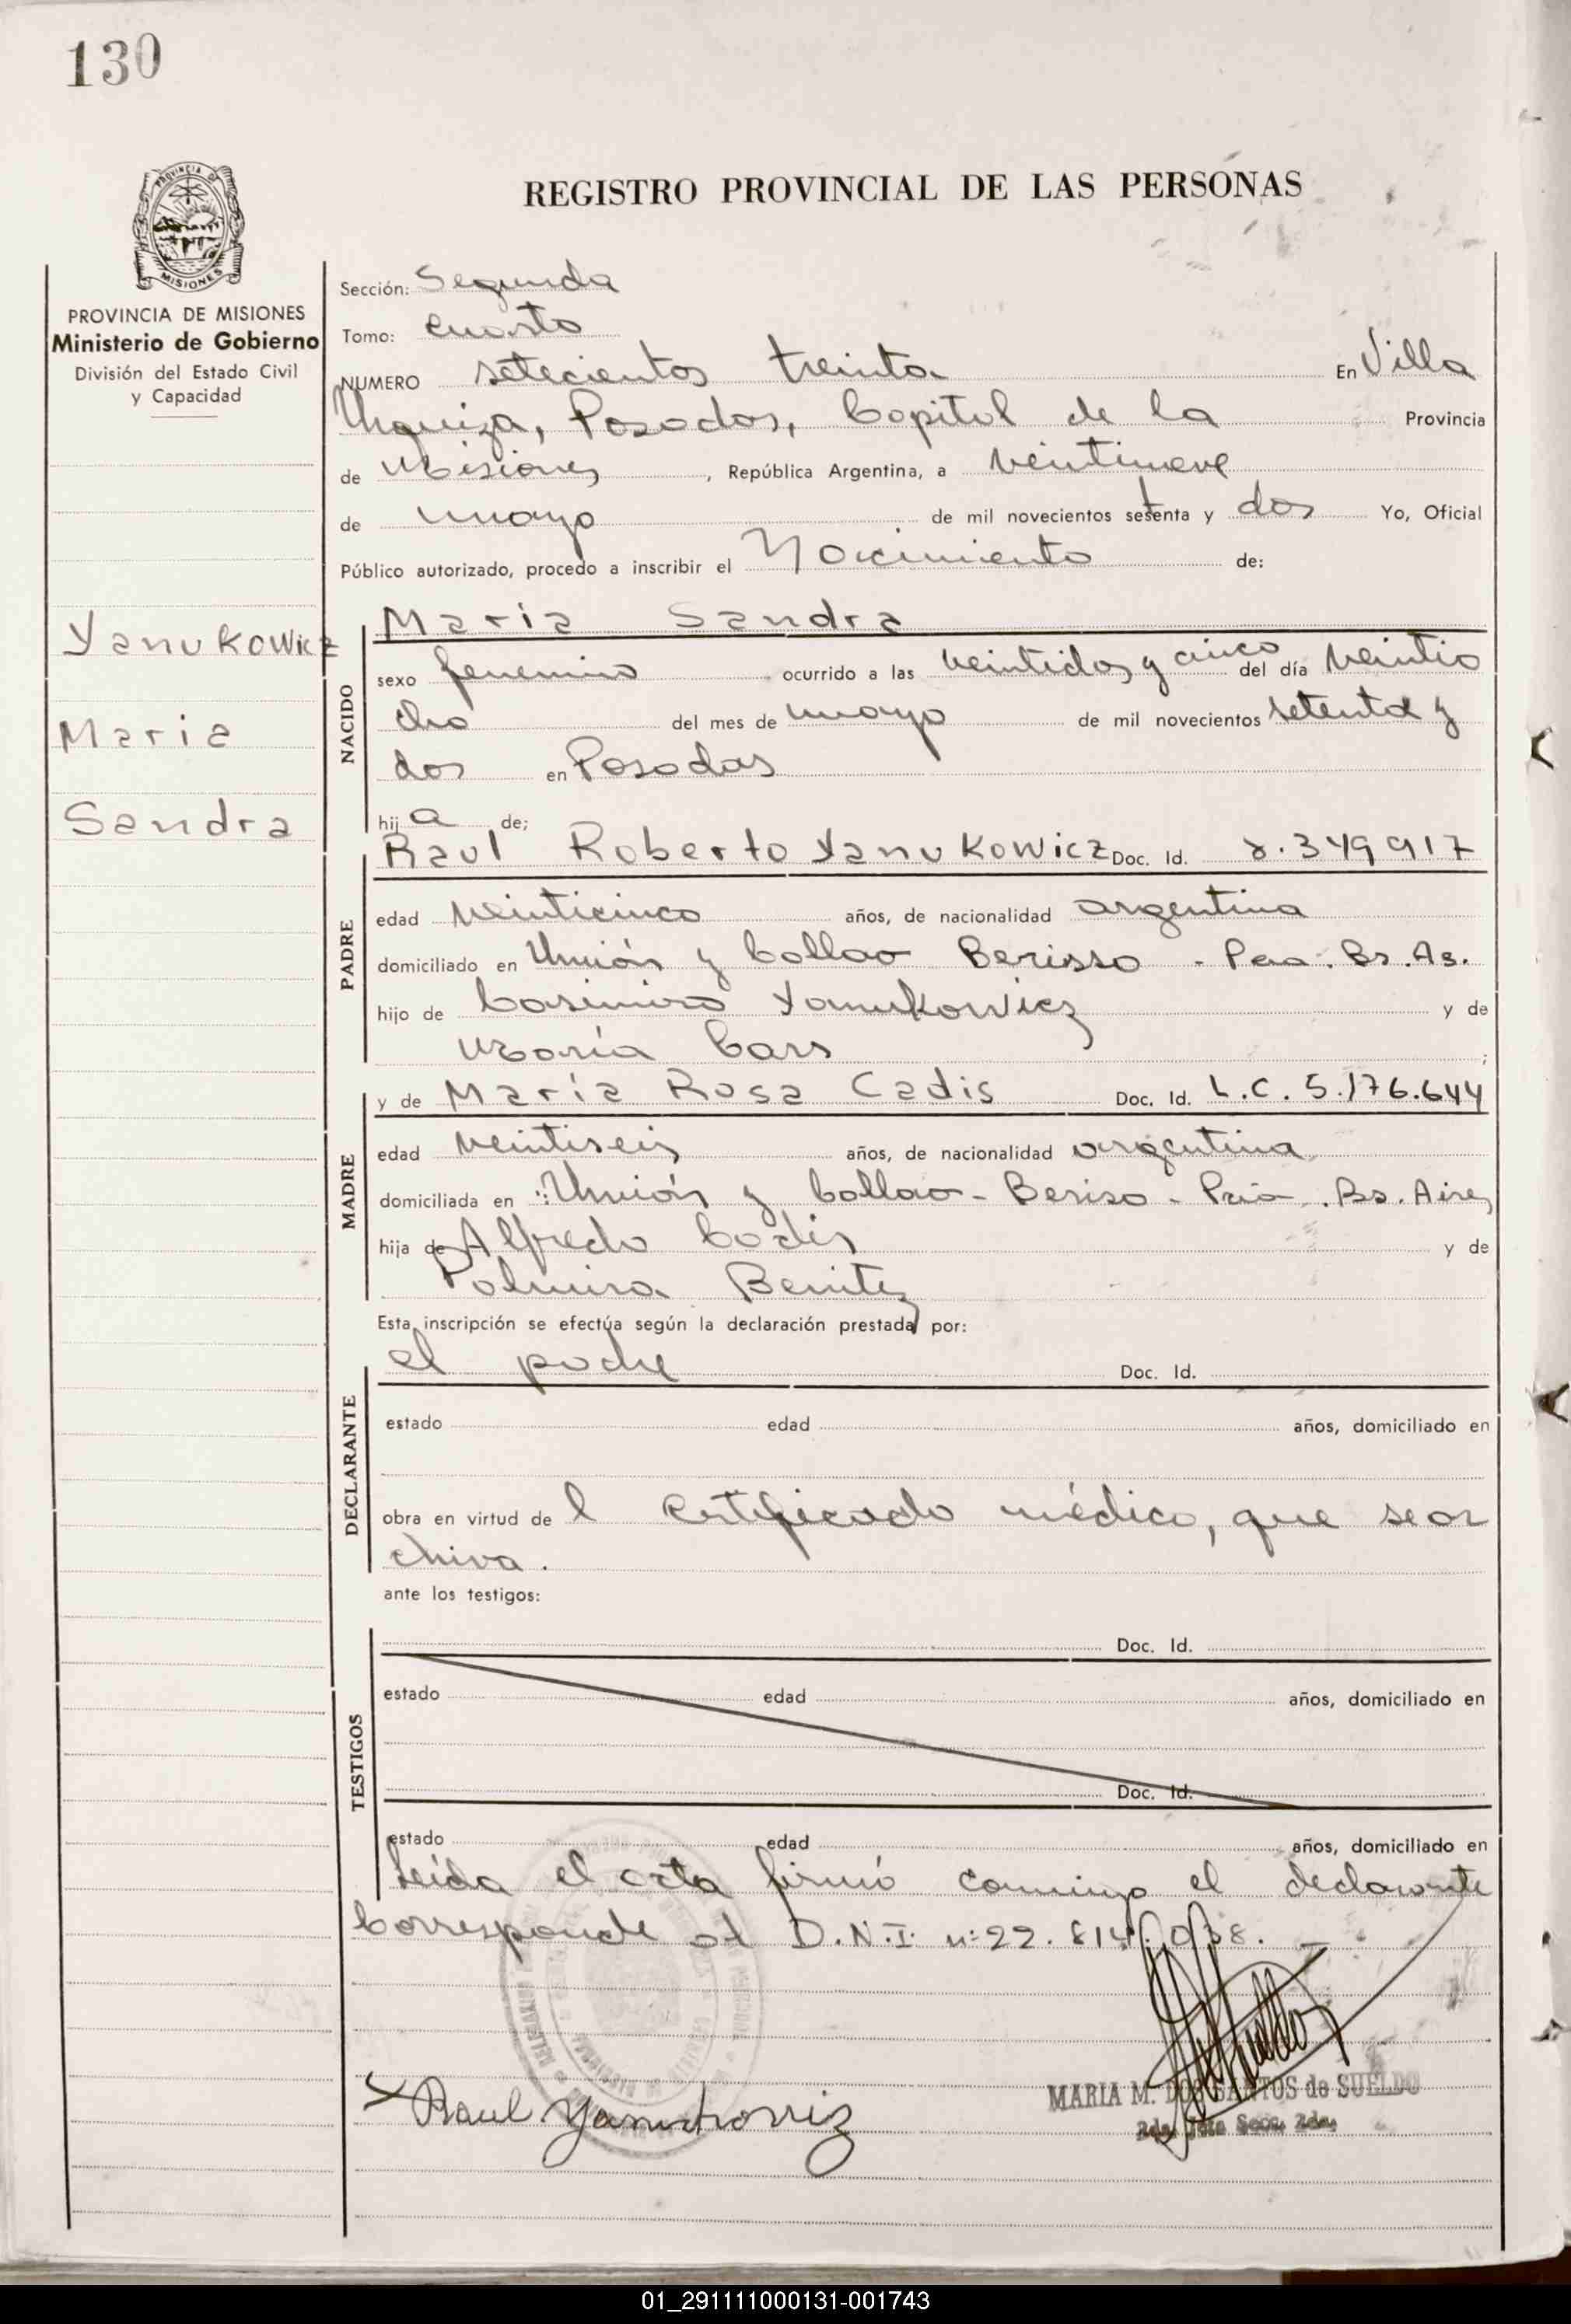 130
REGISTRO PROVINCIAL DE LAS PERSONAS
PROVINCIA DE MISIONES
MISIONES
PROVINCIA DE MISIONES
Ministerio de Gobierno
División del Estado Civil
y Capacidad
Yanukowicz
Maria
Sandra
Sección: Segunda
Tomo: cuarto
NUMERO setecientos treinta En Villa
Urquiza, Posadas, Capital de la Provincia
de Misiones, República Argentina, a veintinueve
de mayo de mil novecientos setenta y dos Yo, Oficial
Público autorizado, procedo a inscribir el Nacimiento de:
NACIDO
Maria Sandra
sexo femenino ocurrido a las veintidos y cinco del día veintio
cho del mes de mayo de mil novecientos setenta y
dos en Posadas
hija de;
PADRE
Raul Roberto Yanukowicz Doc. Id. 8.349917
edad veinticinco años, de nacionalidad argentina
domiciliado en Unión y Collao Berisso - Pcia. Bs. As.
hijo de Casimiro Yanukowicz y de
María Cars ;
MADRE
y de María Rosa Cadis Doc. Id. L.C. 5.176.644
edad veintiseis años, de nacionalidad argentina
domiciliada en Unión y Collao - Beriso - Pcia. Bs. Aires
hija de Alfredo Cadis y de
Palmira Benitez
Esta inscripción se efectúa según la declaración prestada por:
DECLARANTE
el padre Doc. Id.
estado edad años, domiciliado en
obra en virtud del certificado médico, que se ar
chiva.
ante los testigos:
TESTIGOS
Doc. Id.
estado edad años, domiciliado en
Doc. Id.
estado edad años, domiciliado en
Leída el acta firmó conmigo el declarante
Corresponde al D.N.I. nº 22.814.038.
Raul Yanukowicz
MARIA M. DOS SANTOS de SUELDO
2da. Jefa Secc. 2da.
01_291111000131-001743